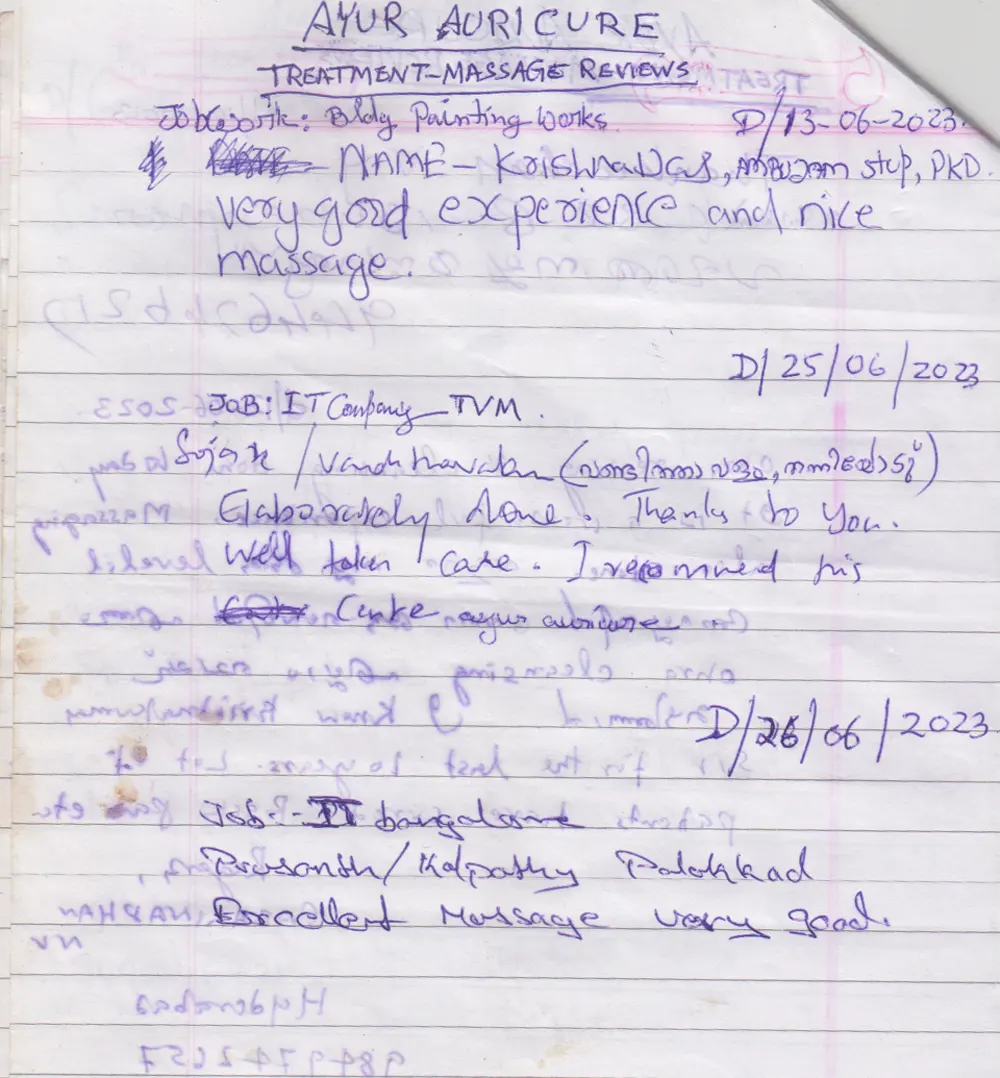 AYUR AURICURE
TREATMENT-MASSAGE REVIEWS
Job work: Bldg Painting Works D/13-06-2023.
NAME - Krishnadas, stop, PKD.
very good experience and nice
massage.
D/25/06/2023
JOB: IT Company TVM.
Sujath / Vandithavalam (വണ്ടിത്താവളം,
Elaborately done. Thanks to You.
Well taken care. I recommend this
Centre ayur auricure
D/26/06/2023
Job:- IT bangalore
Prasanth/Kalpathy Palakkad
Excellent Massage very good.